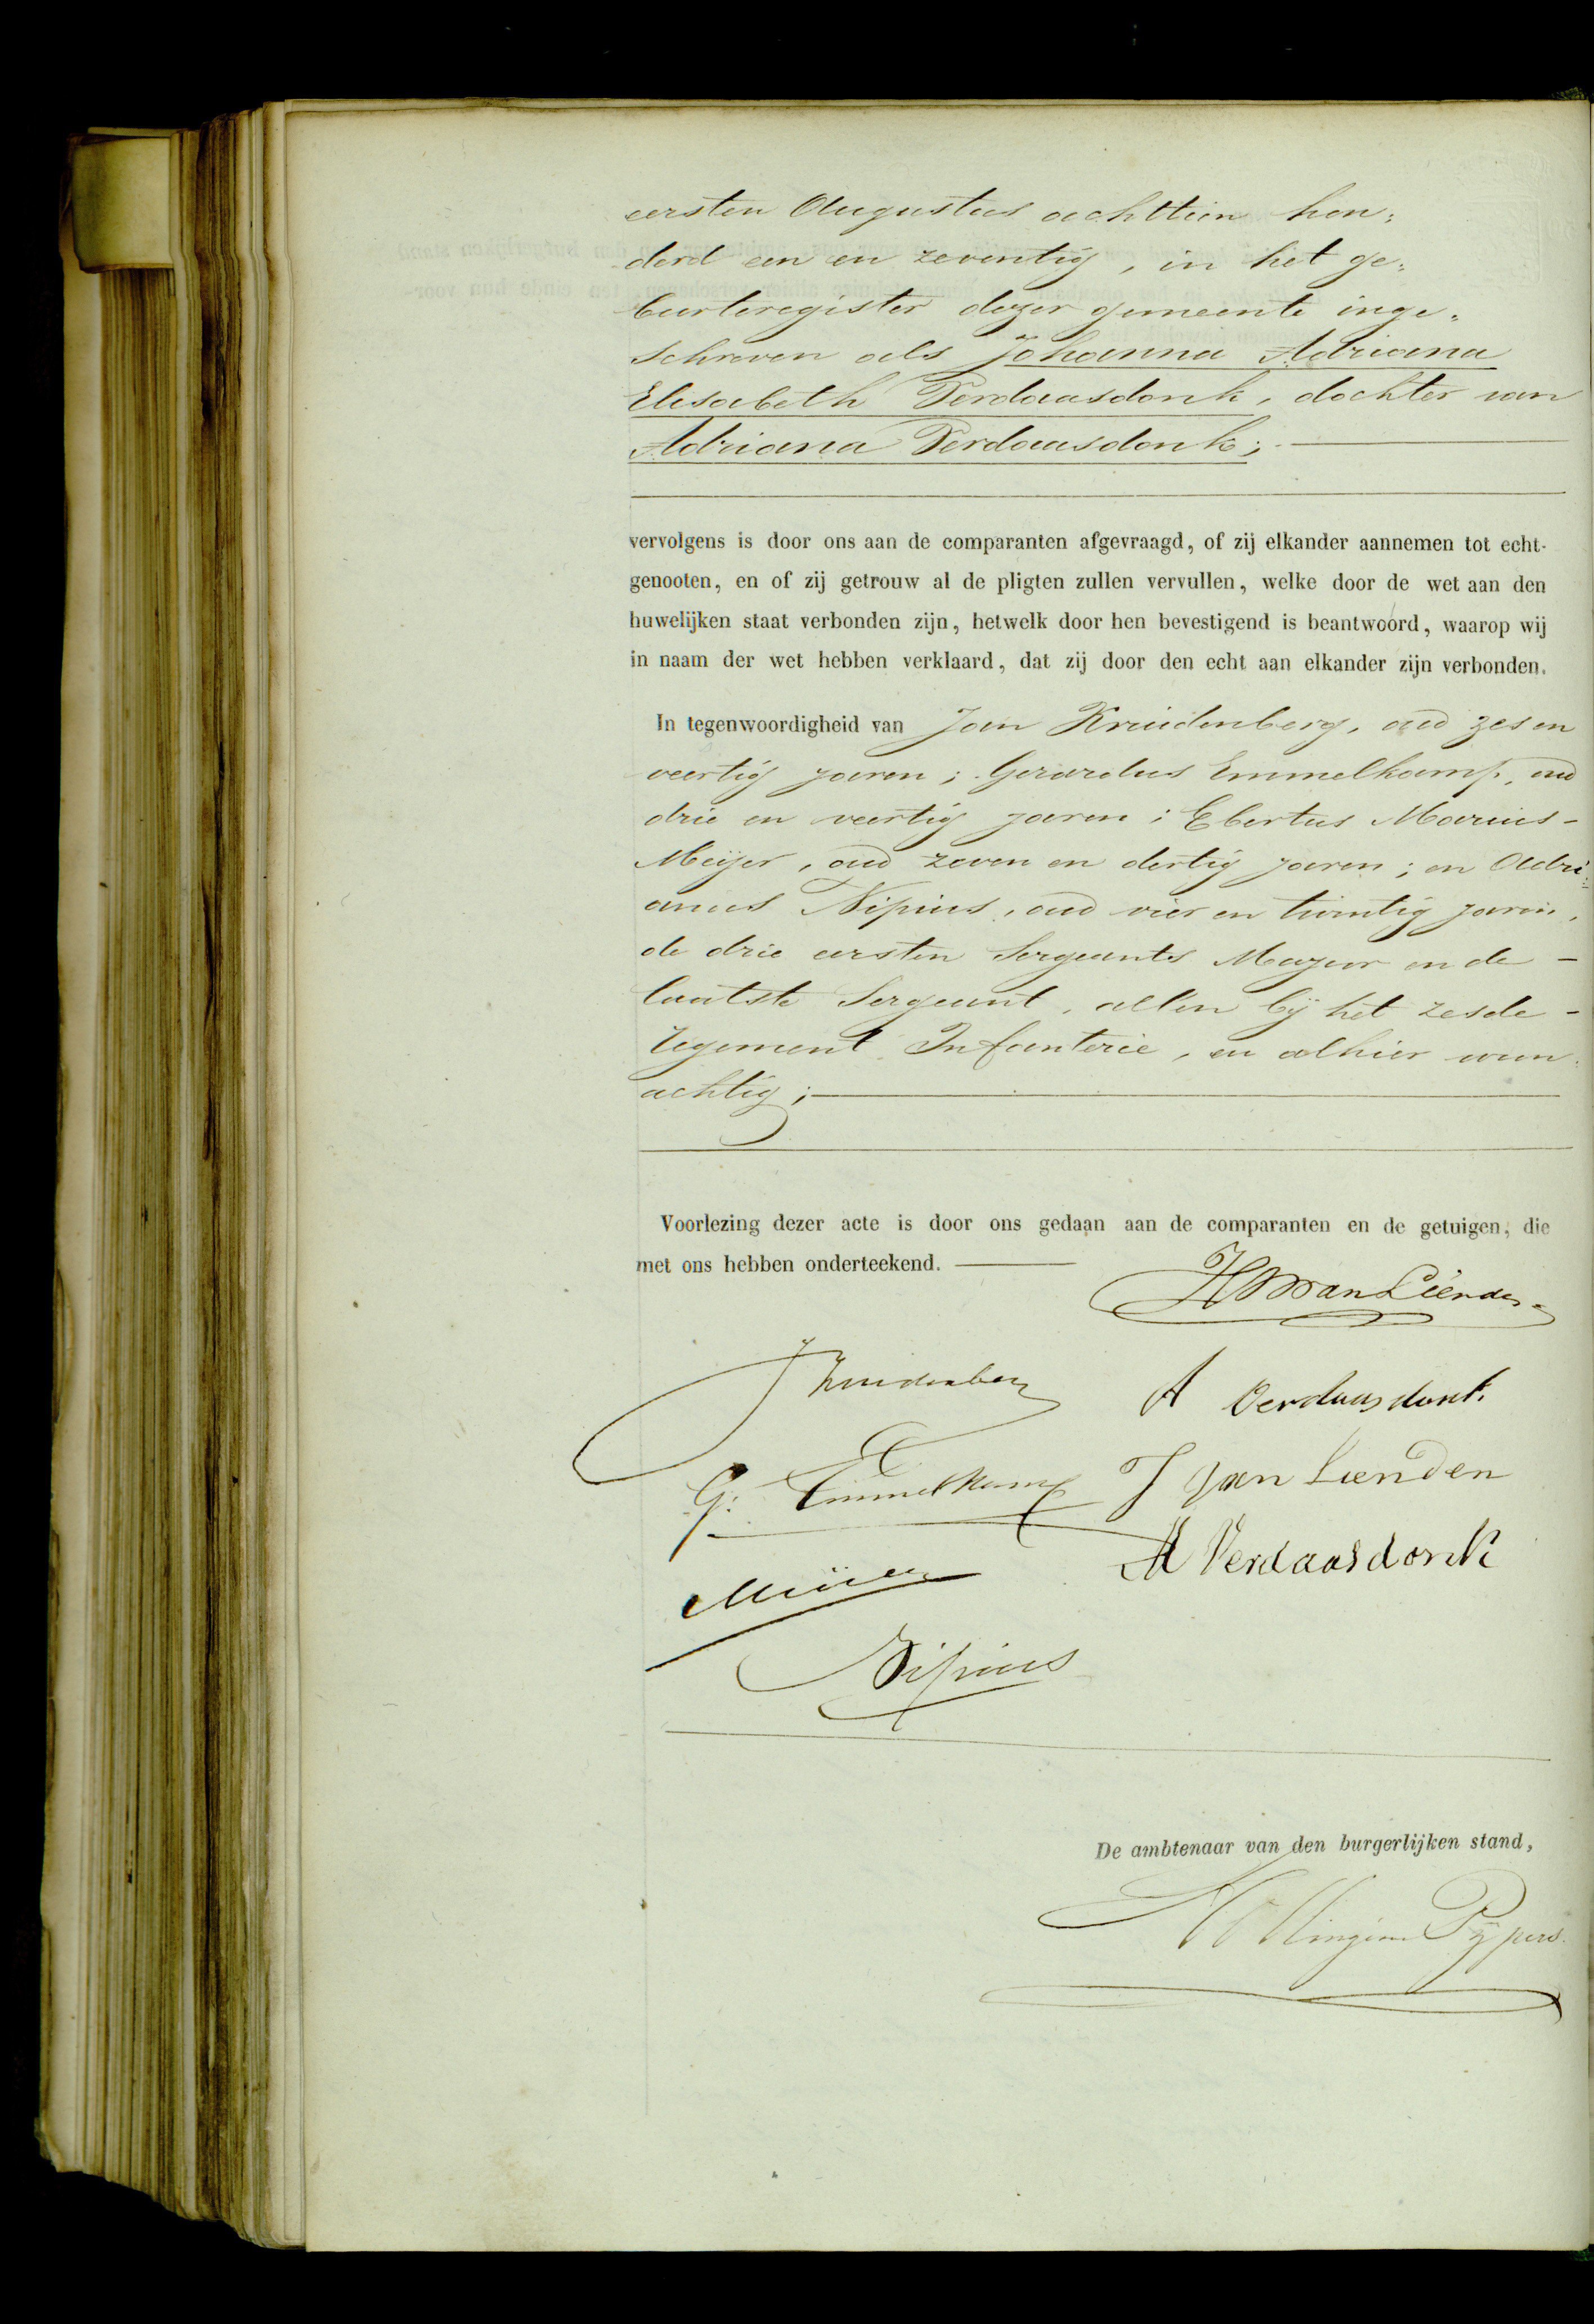 eersten Augustus achttien hon„
derd een en zeventig, in het ge„
boorteregister dezer gemeente inge„
schreven als Johanna Adriana
Elisabeth Verdaasdonk, dochter van
Adriana Verdaasdonk;
vervolgens is door ons aan de comparanten afgevraagd, of zij elkander aannemen tot echt-
genooten, en of zij getrouw al de pligten zullen vervullen, welke door de wet aan den
huwelijken staat verbonden zijn, hetwelk door hen bevestigend is beantwoord, waarop wij
in naam der wet hebben verklaard, dat zij door den echt aan elkander zijn verbonden.
In tegenwoordigheid van Jan Kruidenberg, oud zes en
veertig jaren; Gerardus Emmelkamp, oud
drie en veertig jaren; Ebertus Marius
Meijer, oud zeven en dertig jaren; en Adri„
anus Nipius, oud vier en twintig jaren,
de drie eersten Sergeants Majoor en de
laatste Sergeant, allen bij het zesde
regement Infanterie, en alhier woon„
achtig;
Voorlezing dezer acte is door ons gedaan aan de comparanten en de getuigen, die
met ons hebben onderteekend.
van Lienden
J Kruidenberg
A Verdaasdonk
G. Emmelkamp
J van Lienden
Meijer
A Verdaasdonk
Nipius
De ambtenaar van den burgerlijken stand,
Pypers